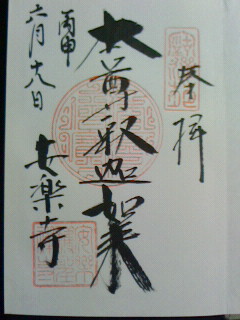 奉拝
本尊釈迦如来
安楽寺
丙申
六月十八日